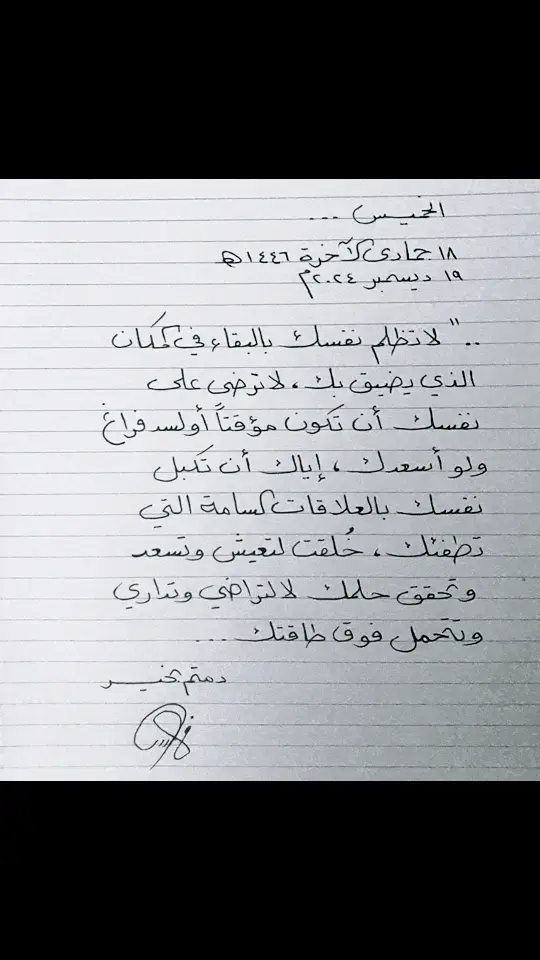 الخميس ...
١٨ جمادى الآخرة ١٤٤٦هـ
١٩ ديسمبر ٢٠٢٤م
.." لا تظلم نفسك بالبقاء في المكان
الذي يضيق بك ، لا ترضى على
نفسك أن تكون مؤقتاً أو لسد فراغ
ولو أسعدك ، إياك أن تكبل
نفسك بالعلاقات السامة التي
تطفئك ، خُلقت لتعيش وتسعد
وتحقق حلمك لا لتراضي وتداري
وتتحمل فوق طاقتك ...
دمتم بخير